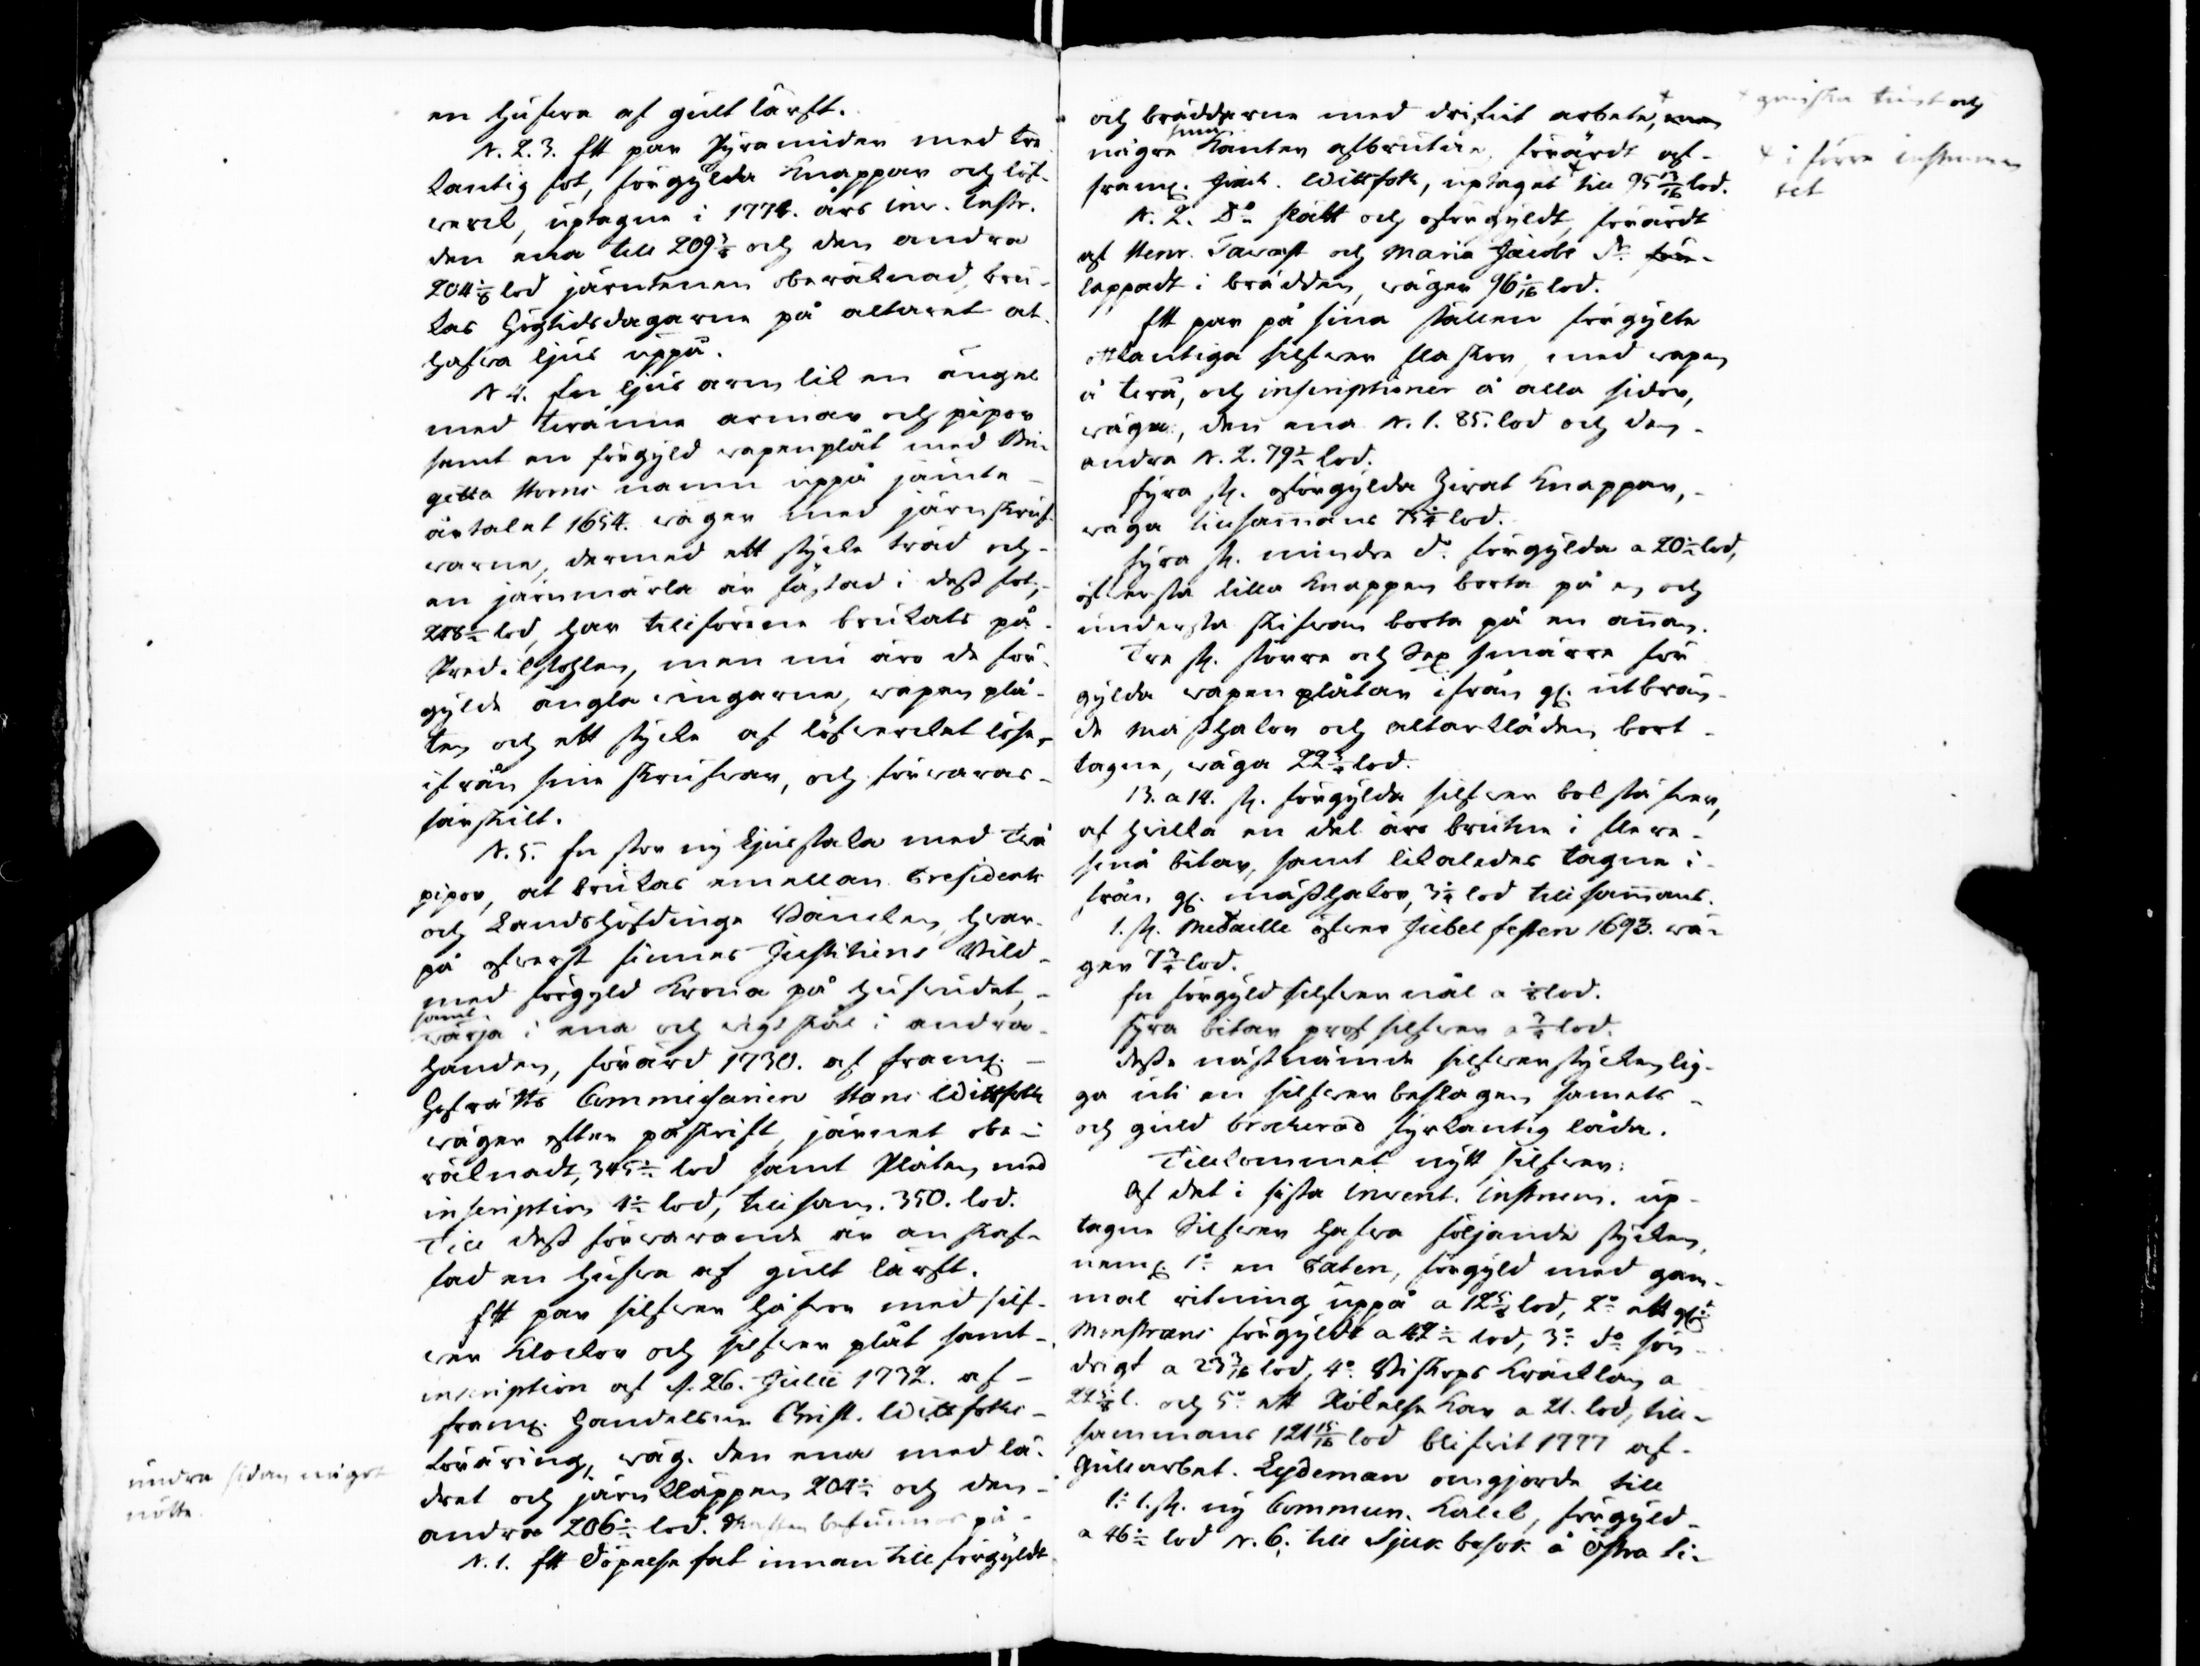 en hufwa af gult lärft.
N. 2. 3. Ett par Pyramider med tre
kantig fot, förgylda Knappar och löf-
werck, uptagne i 1774. års inv. Instr.
den ena till 209 och den andra
204 lod järntenen oberäknad, bru-
kas Högtidsdagarne på altaret at
hafwa ljus uppå.
N 4. En ljus arm lik en ängel
med twänne armar och pipor
samt en förgyld wapenplåt med Bir-
gitta Horns namn uppå jämte
årtalet 1654. wäger med järnskruf-
warne, dermed ett stycke träd och
en järnmärla är fästad i dess fot,
lod, har tillförene brukats på
Predikstohlen, men nu äro de för-
gylde ängla wingarne, wapen plå-
ten och ett stycke af löfwercket löse
ifrån sine skrufwar, och förwaras
särskilt.
N. 5. En stor ny ljusstaka med twå
pipor, at brukas emellan Presidents
och Landshöfdinge Bäncken, hwar-
på ofwerst finnes Justitiens Bild
med förgyld Krona på hufwudet,
samt
wärja i ena och wigtskål i andra
handen, förärd 1730. af framl.
Hofrätts Commissarien Hans Wittfoth
wäger efter påskrift, järnet obe-
räknadt, 345 lod samt Plåten med
inscription 4 lod, tillsam. 350. lod.
Till dess förwarande är anskaf-
fad en hufwa af gult lärft.
Ett par silfwer håfwor med silf-
wer klockor och silfwer plåt samt
inscription af d. 26. Julii 1732. af
framl. Handelsm Christ. Wittfoths
föräring, wäg. den ena med lä-
dret och järnkläppen 204 och den
andra 206 lod. befinnes på
undra sidan något
nötte.
N. 1. Ett Döpelse fat innan till förgyldt
och bräddarne med drifwit arbete, men
ganska tunt och
några Kanter afbrutne, förärdt af
framl. Wittfoth, uptaget till 95 13/16 lod.
i förra instrumen
tet
N. 2. Do slätt och oförgyldt, förärdt
af Henr. Tawast och Maria Jacobs dr.
lappadt i brädden, wäger 96 lod.
Ett par på sina ställen förgylte
ottkantiga silfwer flaskor, med wapen
å twå, och inscriptioner å alla sidor,
wäga, den ena N. 1. 85. lod och den
andra N. 2. 79 lod.
Fyra st. oförgylda Zirat Knappar,
wäga tillsammans 75 lod.
Fyra st. mindre do förgylda a 20 lod,
öfwersta lilla Knappen borta på en och
understa skifwan borta på en annan.
Tre st. större och Sex smärre för
gylda wapen plåtar ifrån gl. utbrän-
de Mässhakor och altarkläden bort-
tagne, wäga 22 lod.
13. a 14. st. förgylda silfwer bokstäfwer,
af hwilka en del äro brutne i flere
små bitar, samt likaledes tagne i-
från gl. mässhakor, 3 lod tillsammans.
1. st. Medaille öfwer Jubelfesten 1693. wä-
ger 7 lod.
En förgyld silfwer nål a lod.
Fyra bitar prof silfwer a lod.
Desse nästnämde silfwerstycken lig-
ga uti en silfwer beslagen samets
och guld brocherad fyrkantig låda.
Tillkommet nytt silfwer:
Af det i sista invent. instrum. up-
tagne Silfwer hafwa följande stycken,
neml. 1o en Paten, förgyld med gam-
mal ritning uppå a 12 lod, 2o ett gl.
Monstrans förgyldt a 42 lod, 3o do sön-
drigt a 23 3/16 lod, 4o Biskops Kräcklan a
22 l. och 5o ett Rökelse Kar a 21. lod, till-
sammans 121 15/16 lod blifwit 1777 af
Gullarbet. Lydeman omgjorde till
1o 1. st. ny Commun. Kalck, förgyld
a 46 lod N. 6. till Sjuk besök å Östra si-